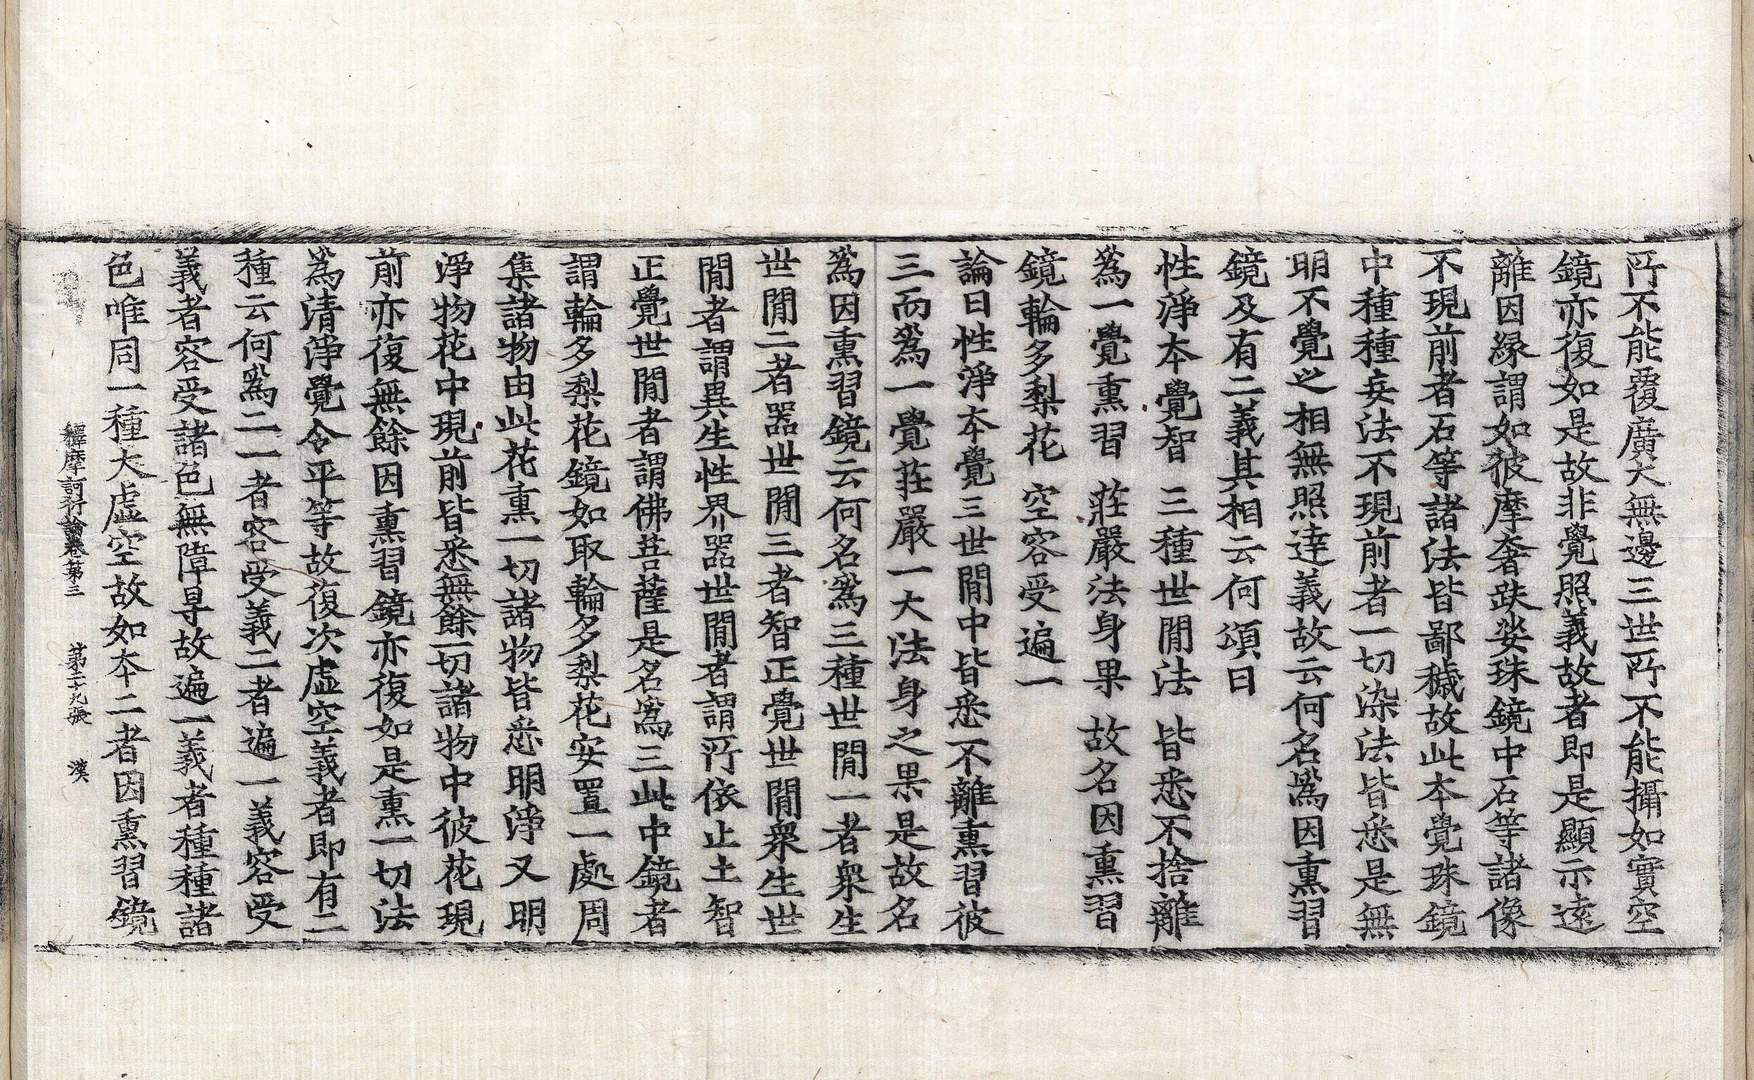 所不能覆廣大無邊三世所不能攝如實空
鏡亦復如是故非覺照義故者即是顯示遠
離因緣謂如彼摩奢趺娑珠鏡中石等諸像
不現前者石等諸法皆鄙穢故此本覺珠鏡
中種種妄法不現前者一切染法皆悉是無
明不覺之相無照達義故云何名爲因熏習
鏡及有二義其相云何頌曰
性淨本覺智 三種世間法 皆悉不捨離
爲一覺熏習 莊嚴法身果 故名因熏習
鏡輪多梨花 空容受遍一
論曰性淨本覺三世間中皆悉不離熏習彼
三而爲一覺莊嚴一大法身之果是故名
爲因熏習鏡云何名爲三種世間一者衆生
世間二者器世間三者智正覺世間衆生世
間者謂異生性界器世間者謂所依止土智
正覺世間者謂佛菩薩是名爲三此中鏡者
謂輪多梨花鏡如取輪多梨花安置一處周
集諸物由此花熏一切諸物皆悉明淨又明
淨物花中現前皆悉無餘一切諸物中彼花現
前亦復無餘因熏習鏡亦復如是熏一切法
爲清淨覺令平等故復次虛空義者即有二
種云何爲二一者容受義二者遍一義容受
義者容受諸色無障㝵故遍一義者種種諸
色唯同一種大虛空故如本二者因熏習鏡
釋摩訶衍論卷第三 第二十九張 漢